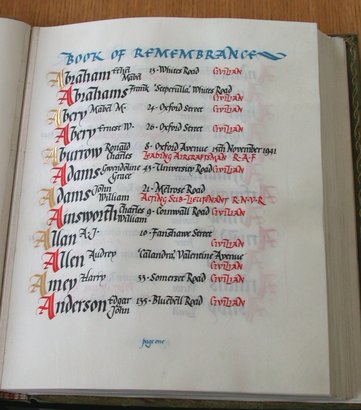 BOOK OF REMEMBRANCE
Abraham Ethel Mabel 15 · Whites Road CIVILIAN
Abrahams Frank 'Whites Road CIVILIAN
Abery Mabel M · 24 · Oxford Street CIVILIAN
Abery Ernest W · 26 · Oxford Street CIVILIAN
Aburrow Ronald Charles 8 · Oxford Avenue 15th November 1941 LEADING AIRCRAFTSMAN R·A·F
Adams Gwendoline Grace 43 · University Road CIVILIAN
Adams John William 21 · Melrose Road ACTING SUB-LIEUTENANT R·N·V·R
Ainsworth Charles William 9 · Cornwall Road CIVILIAN
Allan A·J· 10 · Fanshawe Street CIVILIAN
Allen Audrey 'Calandra', Valentine Avenue CIVILIAN
Amey Harry 33 · Somerset Road CIVILIAN
Anderson Edgar John 135 · Bluebell Road CIVILIAN
page one